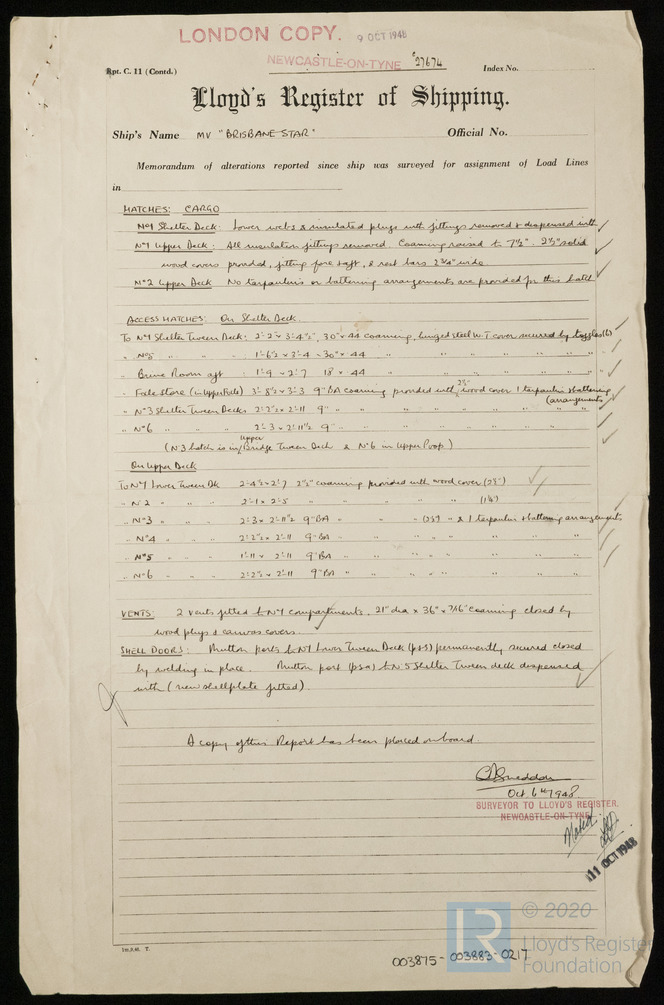 LONDON COPY. 9 OCT 1948
NEWCASTLE-ON-TYNE 27674
Rpt. C. 11 (Contd.) Index No.
Lloyd's Register of Shipping.
Ship's Name MV "BRISBANE STAR" Official No.
Memorandum of alterations reported since ship was surveyed for assignment of Load Lines
in
HATCHES: CARGO
No1 Shelter Deck: Lower webs & insulated plugs with fittings removed & dispensed with
No1 Upper Deck: All insulation fittings removed. Coaming raised to 7½". 2½" solid
wood covers provided, fitting fore & aft, & rest bars 2¾" wide
No2 Upper Deck No tarpaulins or battening arrangements are provided for this hatch
ACCESS HATCHES: On Shelter Deck.
To No1 Shelter Tween Deck: 2'-2" x 3'-4½", 30" x .44 coaming, hinged steel W.T cover secured by toggles (6)
" No5 " " " 1'-6½ x 3'-4 - 30" x .44 " " " " " "
- Brine Room aft : 1'-9 x 2'-7 18" x .44 " " " " " "
- Fale Store (in Upper Fo'cle) 3'-8½ x 3'-3 9" BA coaming provided with 2½" wood cover 1 tarpaulin & battening
(arrangements)
" No3 Shelter Tween Decks 2'-2½ x 2'-11 9" " " " " " "
" No6 " " " 2'-3 x 2'-11½ 9" " " " " " "
(No3 hatch is in Upper Bridge Tween Deck & No6 in Upper Poop)
On Upper Deck
To No1 Lower Tween Dk 2'-4½ x 2'-7 2½" coaming provided with wood cover (2½")
- No2 " " 2'-1 x 2'-5 " " " " (1¼")
" No3 " " 2'-3 x 2'-11½ 9" BA " " " (2½") " & 1 tarpaulin & battening arrangements
" No4 " " 2'-2½ x 2'-11 9" BA " " " " "
" No5 " " 1'-11 x 2'-11 9" BA " " " " "
" No6 - " 2'-2½ x 2'-11 9" BA " " " " "
VENTS: 2 vents fitted to No1 compartments. 21" dia x 36" x 7/16" coaming closed by
wood plugs & canvas covers.
SHELL DOORS: Mutton ports to No1 Lower Tween Deck (p&s) permanently secured closed
by welding in place. Mutton port (p&s) to No5 Shelter Tween deck dispensed
with (new shellplate fitted).
A copy of this Report has been placed on board.
Sneddon
Oct. 6th 1948
SURVEYOR TO LLOYD'S REGISTER.
NEWCASTLE-ON-TYNE
Noted
11 OCT 1948
© 2020
LR Lloyd's Register
Foundation
003875 - 003883 - 0217